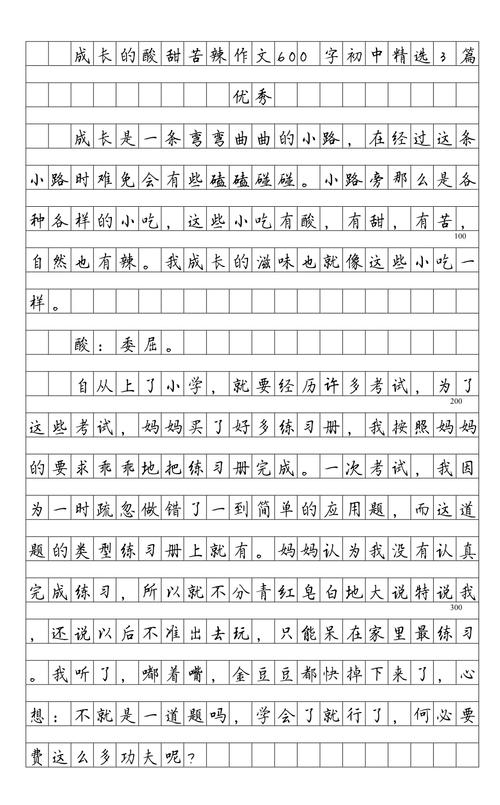 成长的酸甜苦辣作文600字初中精选3篇
优秀
成长是一条弯弯曲曲的小路，在经过这条
小路时难免会有些磕磕碰碰。小路旁那么是各
种各样的小吃，这些小吃有酸，有甜，有苦，
100
自然也有辣。我成长的滋味也就像这些小吃一
样。
酸：委屈。
自从上了小学，就要经历许多考试，为了
200
这些考试，妈妈买了好多练习册，我按照妈妈
的要求乖乖地把练习册完成。一次考试，我因
为一时疏忽做错了一到简单的应用题，而这道
题的类型练习册上就有。妈妈认为我没有认真
完成练习，所以就不分青红皂白地大说特说我
300
，还说以后不准出去玩，只能呆在家里最练习
。我听了，嘟着嘴，金豆豆都快掉下来了，心
想：不就是一道题吗，学会了就行了，何必要
费这么多功夫呢？